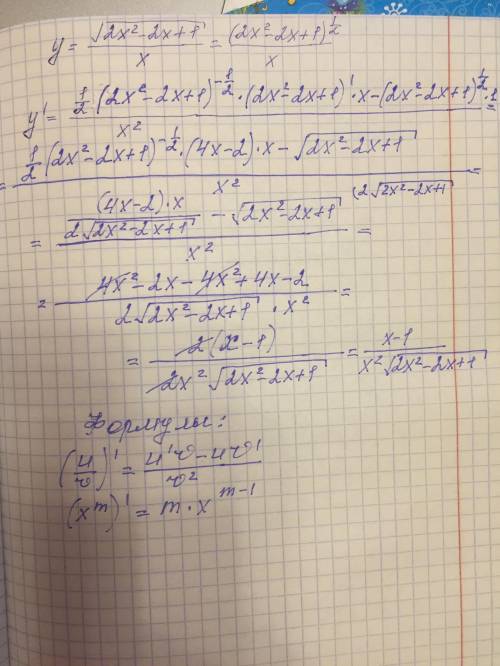 y = √(2x²-2x+1) / x = (2x²-2x+1)^(1/2) / x
y' = (1/2 · (2x²-2x+1)^(-1/2) · (2x²-2x+1)' · x - (2x²-2x+1)^(1/2) · 1) / x² =
= (1/2 (2x²-2x+1)^(-1/2) · (4x-2) · x - √(2x²-2x+1)) / x² =
= ((4x-2)·x / (2√(2x²-2x+1)) - √(2x²-2x+1) (2√(2x²-2x+1)) / x² =
= (4x²-2x-4x²+4x-2) / (2√(2x²-2x+1) · x²) =
= 2(x-1) / (2x²√(2x²-2x+1)) = (x-1) / (x²√(2x²-2x+1))
Формулы:
(u/v)' = (u'v-uv') / v²
(x^m)' = m·x^(m-1)